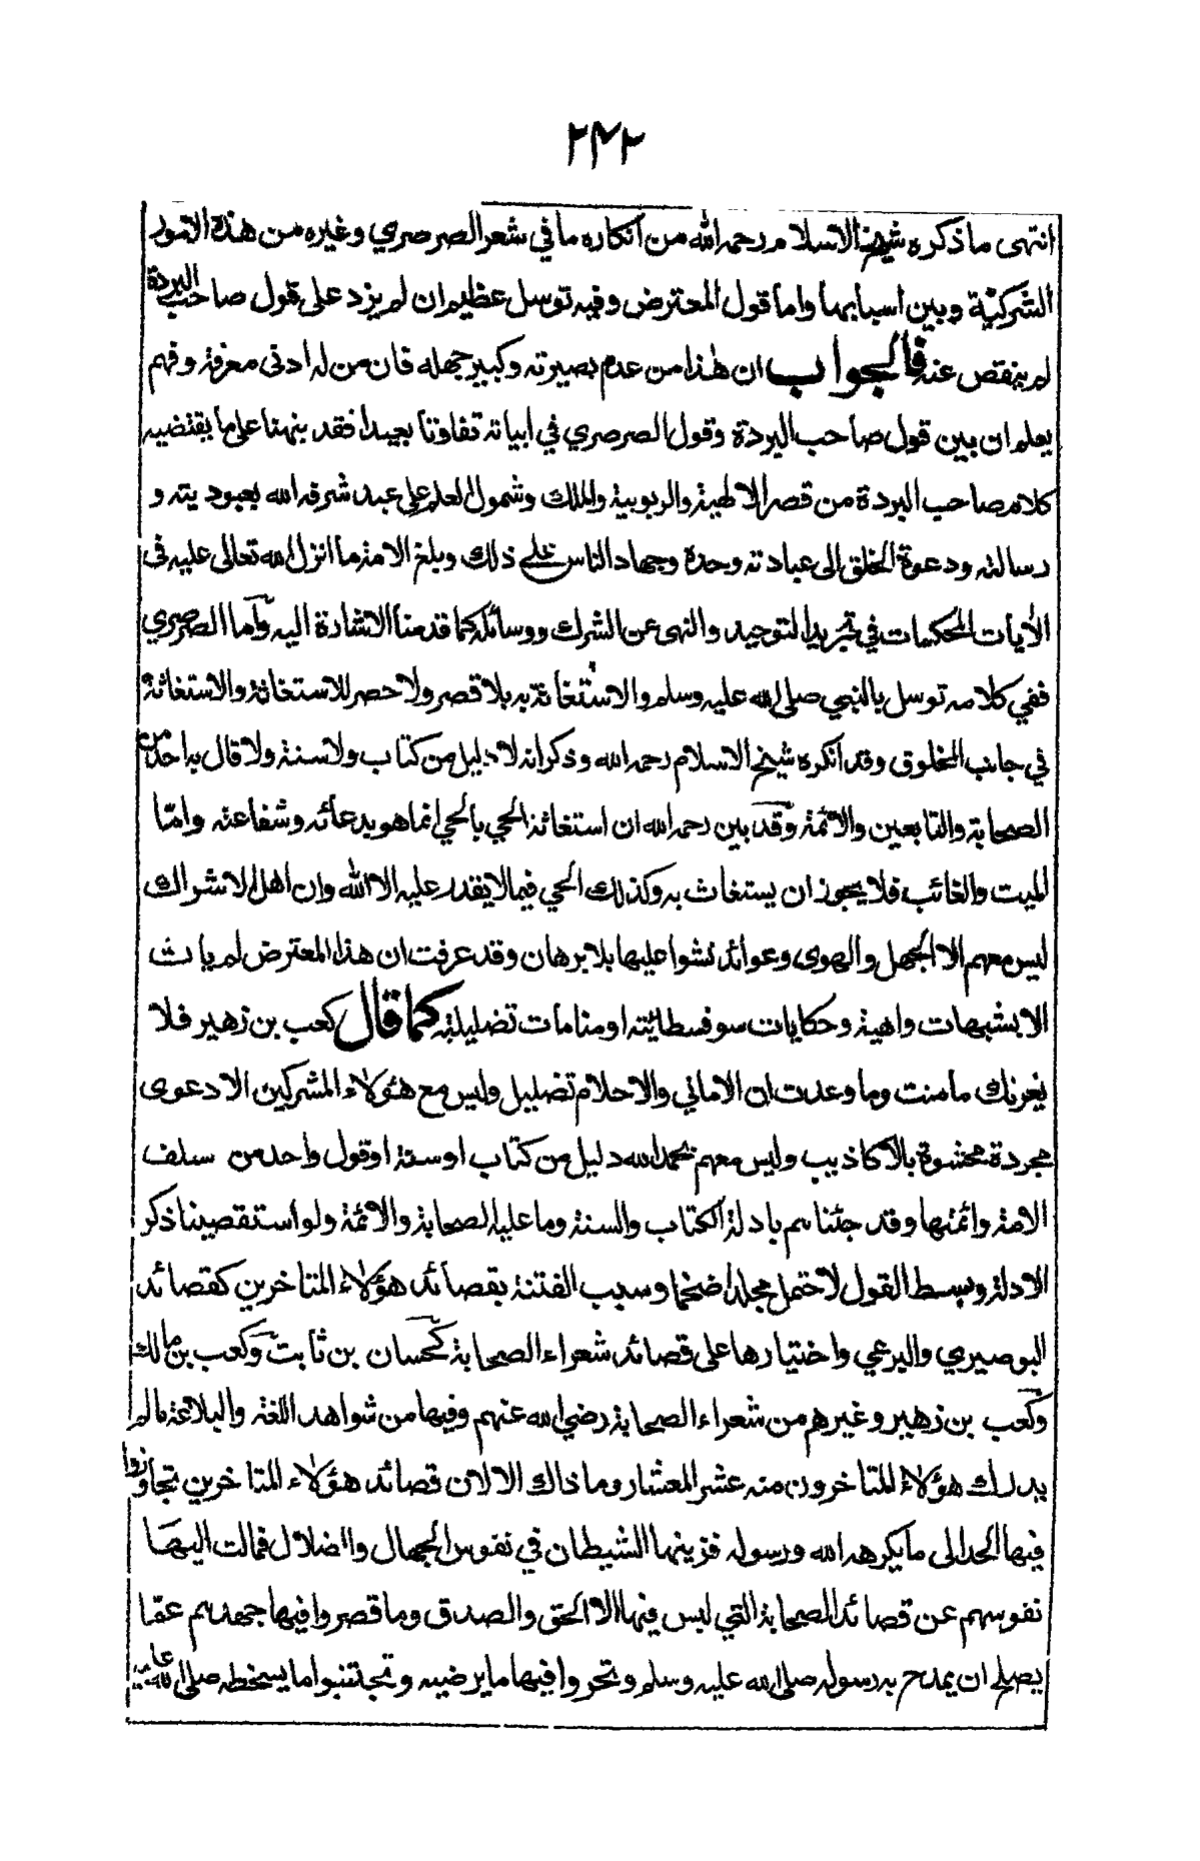 ٢٤٢
انتهى ما ذكره شيخ الاسلام رحمه الله من انكاره ما في شعر الصرصري وغيره من هذه الامور
الشركيّة وبين اسبابها واما قول المعترض وفيه توسل عظيم ان لم يزد على قول صاحب البردة
لم ينقص عنه فالجواب ان هٰذا من عدم بصيرته وكبير جهله فان من له ادنى معرفة وفهم
يعلم ان بين قول صاحب البردة وقول الصرصري في ابياته تفاوتا بعيدا فقد نبهنا على ما يقتضيه
كلام صاحب البردة من قصر الالهية والربوبية والملك وشمول العلم على عبد شرفه الله بعبوديته و
رسالته ودعوة الخلق الى عبادته وحده وجهاد الناس على ذلك وبلغ الامة ما انزل الله تعالى عليه في
الاٰيات المحكمات في تجريد التوحيد والنهى عن الشرك ووسائله كما قدمنا الاشارة اليه وأما الصرصري
ففي كلامه توسل بالنبي صلى الله عليه وسلم والاستغاثة به بلا قصر ولا حصر للاستغاثة والاستغاثة
في جانب المخلوق وقد انكره شيخ الاسلام رحمه الله وذكر انه لا دليل من كتاب ولا سنة ولا قال به احد من
الصحابة والتابعين والائمة وقد بين رحمه الله ان استغاثة الحي بالحي انما هو بدعائه وشفاعته وامّا
الميت والغائب فلا يجوز ان يستغاث به وكذلك الحي فيما لا يقدر عليه الا الله وان اهل الاشراك
ليس معهم الا الجهل والهوى وعوائد نشوا عليها بلا برهان وقد عرفت ان هذا المعترض لم يات
الا بشبهات واهية وحكايات سوفسطائية او منامات تضليلية كما قال كعب بن زهير فلا
يغرنك ما منت وما وعدت ان الاماني والاحلام تضليل وليس مع هؤلاء المشركين الا دعوى
مجردة محشوة بالاكاذيب وليس معهم بحمد الله دليل من كتاب او سنة او قول واحد من سلف
الامة وائمتها وقد جئناهم بادلة الكتاب والسنة وما عليه الصحابة والائمة ولو استقصينا ذكر
الادلة وبسط القول لاحتمل مجلدا ضخما وسبب الفتنة بقصائد هؤلاء المتاخرين كقصائد
البوصيري والبرعي واختيارها على قصائد شعراء الصحابة كحسان بن ثابت وكعب بن مالك
وكعب بن زهير وغيرهم من شعراء الصحابة رضي الله عنهم وفيها من شواهد اللغة والبلاغة ما لم
يدرك هؤلاء المتاخرون منه عشر المعشار وما ذاك الا لان قصائد هؤلاء المتاخرين تجاوزوا
فيها الحد الى ما يكرهه الله ورسوله فزينها الشيطان في نفوس الجهال والضلال فمالت اليها
نفوسهم عن قصائد الصحابة التي ليس فيها الا الحق والصدق وما قصروا فيها جهدهم عمّا
يصلح ان يمدح به رسوله صلى الله عليه وسلم وتحروا فيها ما يرضيه وتجتنبوا ما يسخطه صلى الله عليه